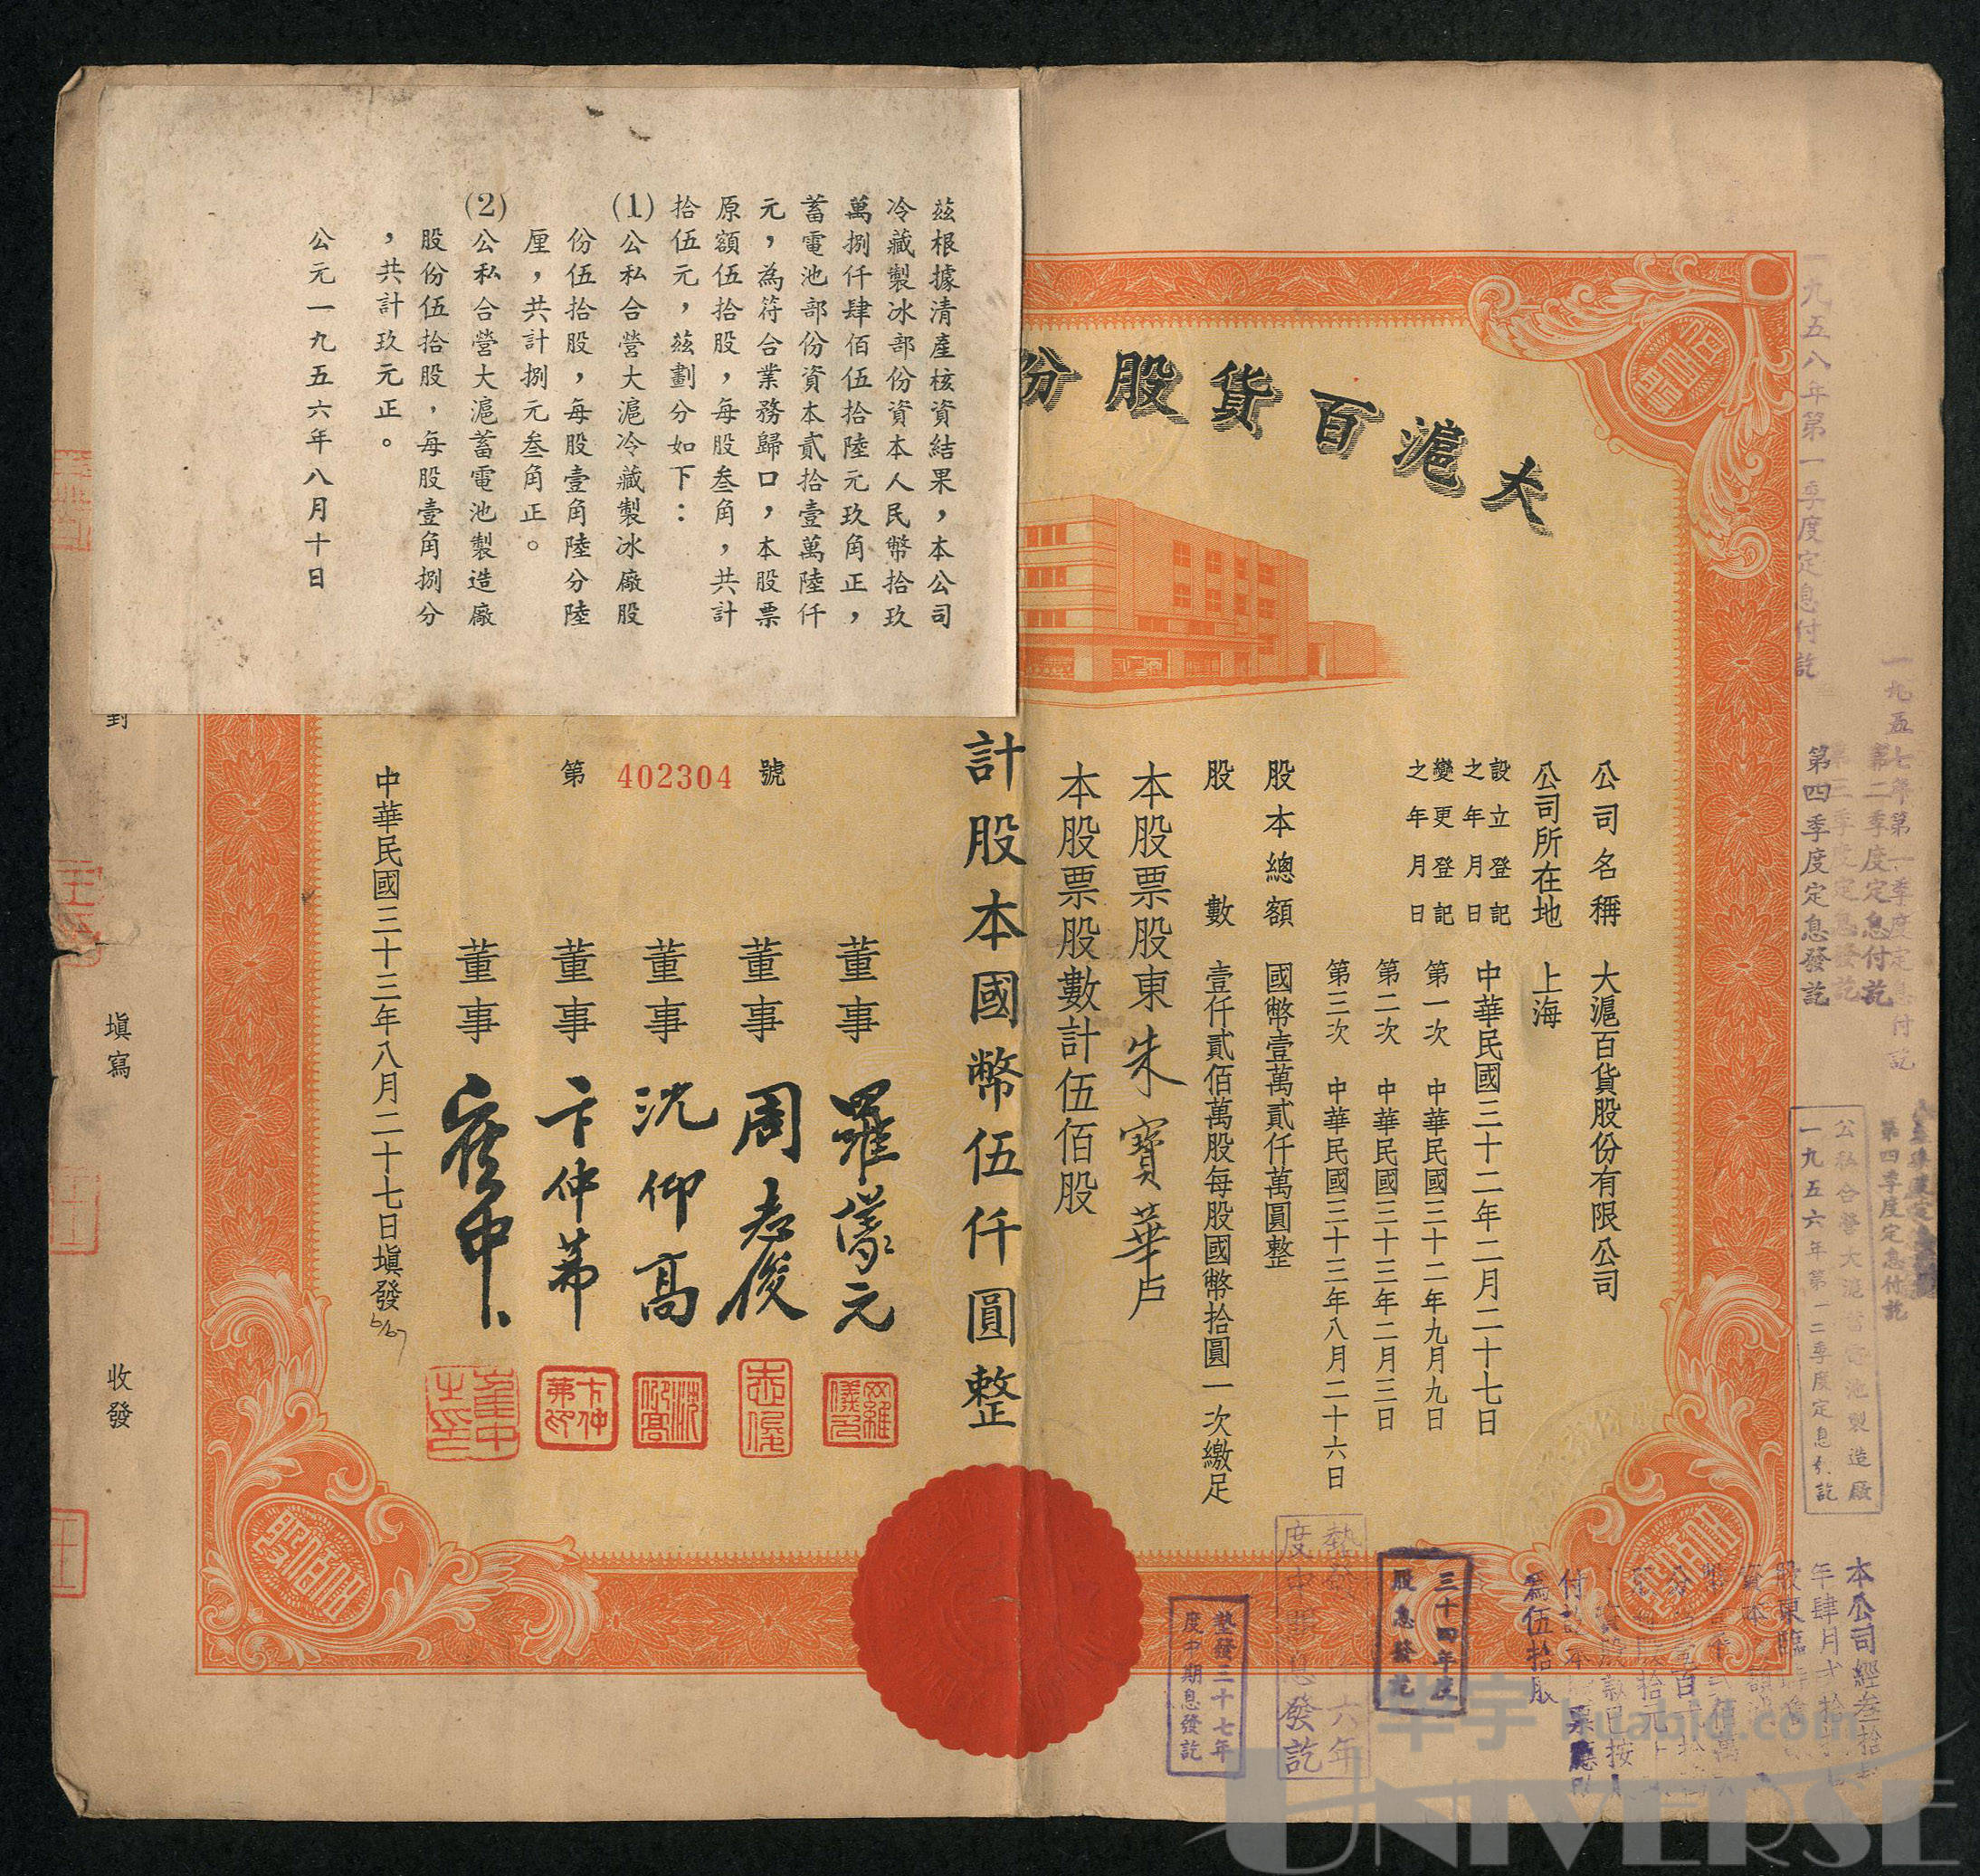 大滬百貨股份
公司名稱 大滬百貨股份有限公司
公司所在地 上海
設立登記之年月日 中華民國三十二年二月二十七日
變更登記之年月日 第一次 中華民國三十二年九月九日
第二次 中華民國三十三年二月三日
第三次 中華民國三十三年八月二十六日
股本總額 國幣壹萬貳仟萬圓整
股數 壹仟貳佰萬股每股國幣拾圓一次繳足
本股票股東朱寶華戶
本股票股數計伍佰股
計股本國幣伍仟圓整
第 402304 號
董事 羅儀元
董事 周志俊
董事 沈仰高
董事 卞仲茀
董事
中華民國三十三年八月二十七日填發
茲根據清產核資結果，本公司
冷藏製冰部份資本人民幣拾玖
萬捌仟肆佰伍拾陸元玖角正，
蓄電池部份資本貳拾壹萬陸仟
元，為符合業務歸口，本股票
原額伍拾股，每股叁角，共計
拾伍元，茲劃分如下：
(1)公私合營大滬冷藏製冰廠股
份伍拾股，每股壹角陸分陸
厘，共計捌元叁角正。
(2)公私合營大滬蓄電池製造廠
股份伍拾股，每股壹角捌分
，共計玖元正。
公元一九五六年八月十日
對
填寫
收發
一九五八年第一季度定息付訖
一九五七年第一季度定息付訖
第二季度定息付訖
第三季度定息發訖
第四季度定息發訖
第四季度定息付訖
公私合營大滬蓄電池製造廠
一九五六年第一二季度定息付訖
三十四年度
股息發訖
墊發三十七年
度中期息發訖
為伍拾股
華宇 huabid.com
UNIVERSE